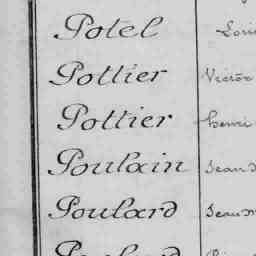 Potel
Pottier Victor
Pottier henri
Poulain Jean
Poulard Jean